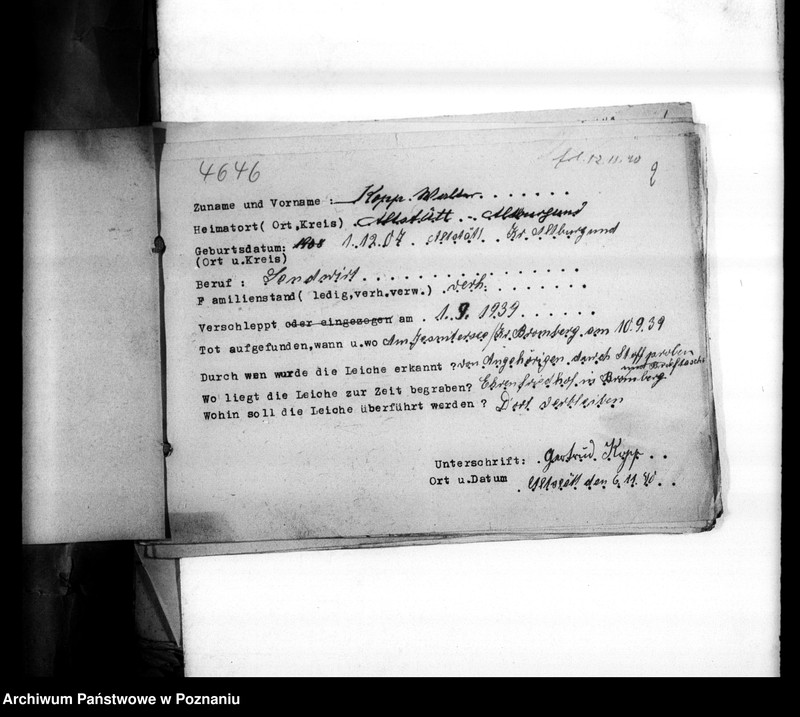 4646
12.11.40
2
Zuname und Vorname : Kopp. Walter. . . . . . .
Heimatort( Ort,Kreis) Altstätt - Altburgund
Geburtsdatum: 1908 1.12.07. Altstätt. Kr. Altburgund
(Ort u.Kreis)
Beruf : Landwirt . . . . . . . . . . . . . . .
F amilienstand( ledig,verh.verw.) .verh. . . . . . . .
Verschleppt oder eingezogen am . 1.9.1939. . . . . .
Tot aufgefunden,wann u.wo Am Jesuitersee/Kr. Bromberg am 10.9.39
Durch wen wurde die Leiche erkannt ? von Angehörigen durch Stoffproben
und Brieftasche
Wo liegt die Leiche zur Zeit begraben? Ehrenfriedhof in Bromberg.
Wohin soll die Leiche überführt werden ? Dort verbleiben
Unterschrift: . Gertrud. Kopp . .
Ort u.Datum . Altstätt den 6.11.40 . .
Archiwum Państwowe w Poznaniu